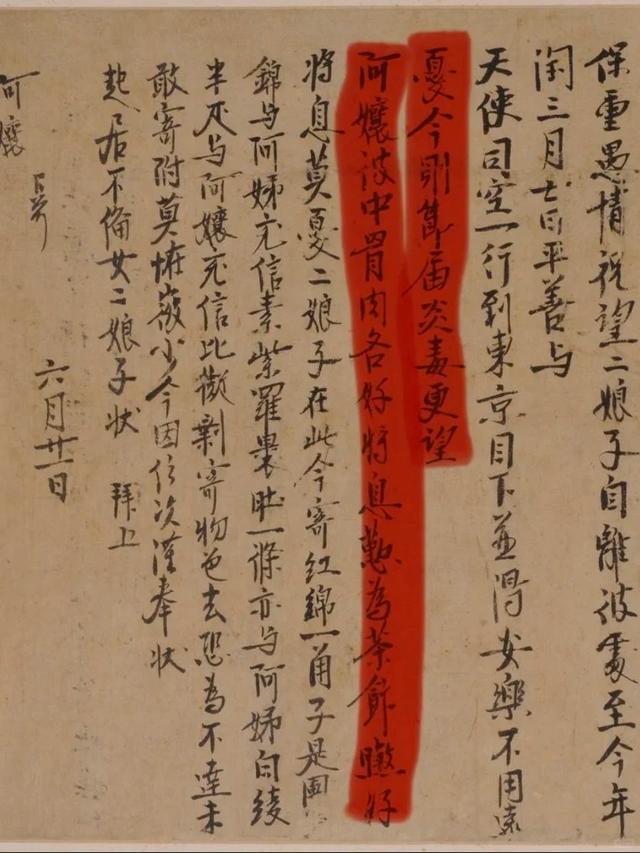 保重愚情祝望二娘子自離彼處至今年
閏三月七日平善与
天使司空一行到東京目下並得安樂不用遠
憂今則節届炎毒更望
阿孃彼中骨肉各好將息勤為茶飰
將息莫憂二娘子在此今寄紅錦一角子是
錦与阿姊充信素紫羅裹肚一條亦与阿姊白綾
半疋与阿孃充信比擬剩寄物色去恐為不達未
敢寄附莫怪微少今因信次謹奉狀
起居不備女二娘子狀 拜上
六月廿一日
阿孃